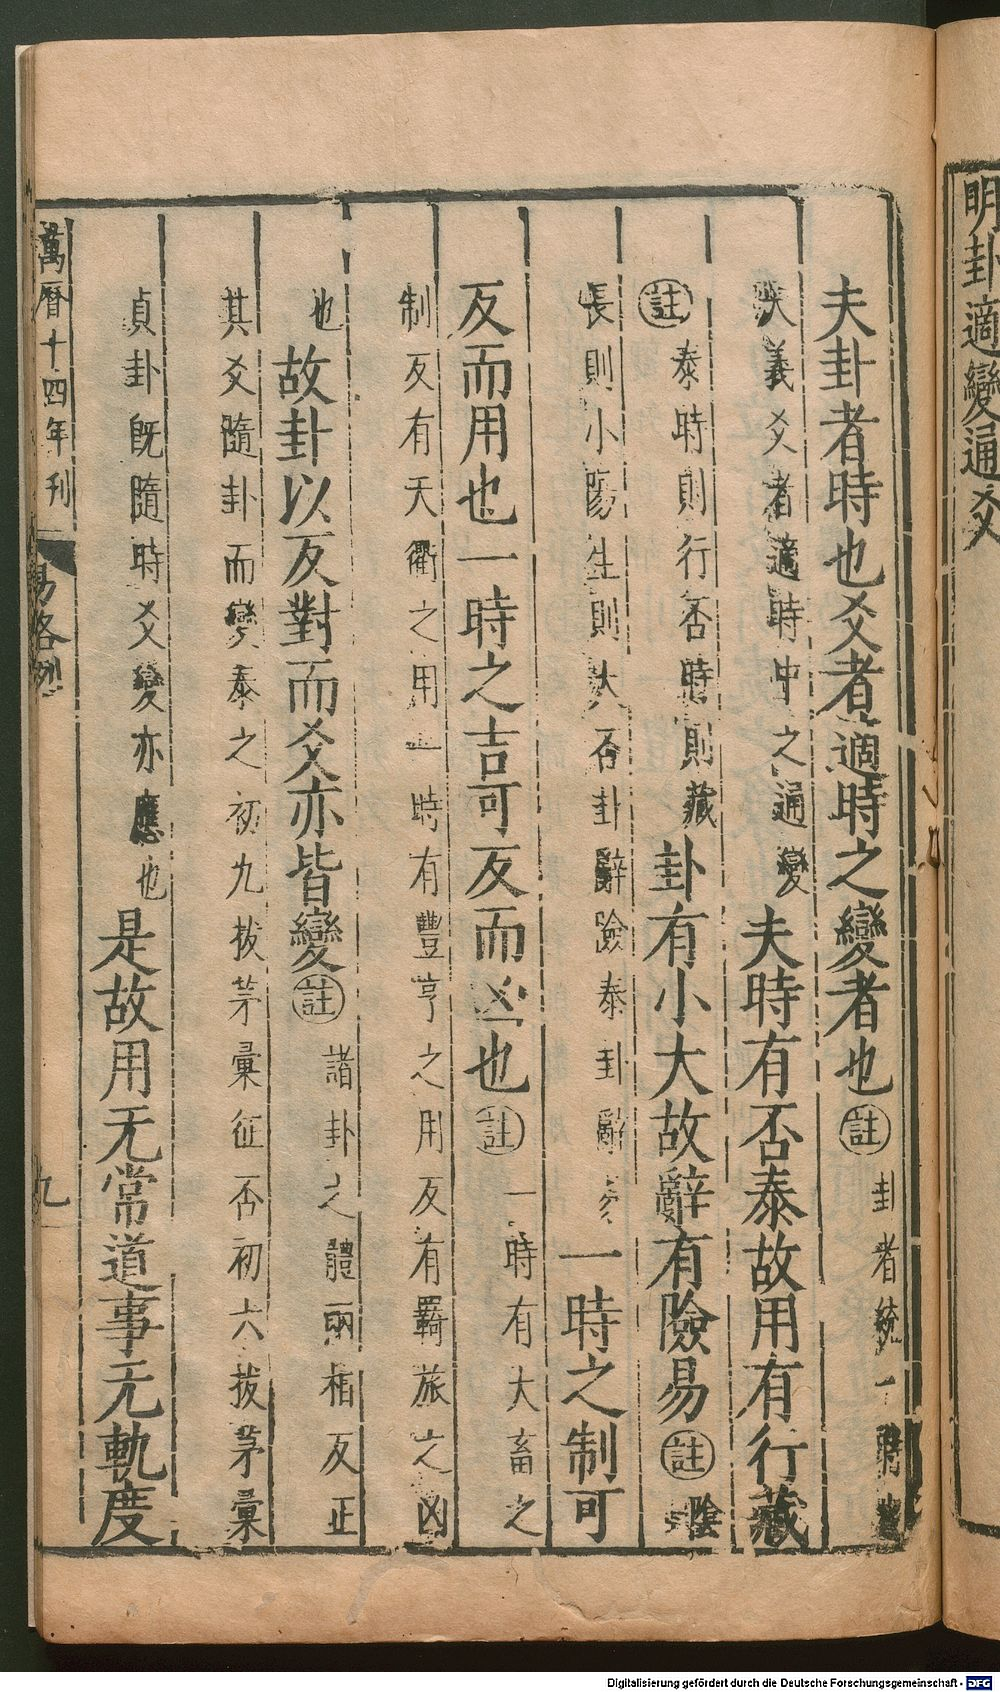 明卦適變通爻
夫卦者時也爻者適時之變者也註卦者統一時
大義爻者適時中之通變夫時有否泰故用有行藏
註泰時則行否時則藏卦有小大故辭有險易註陰
長則小陽生則大否卦辭險泰卦辭一時之制可
反而用也一時之吉可反而凶也註一時有大畜之
制反有天衢之用一時有豐亨之用反有羇旅之凶
也故卦以反對而爻亦皆變註諸卦之體兩相反正
其爻隨卦而變泰之初九拔茅彙征否初六拔茅彙
貞卦旣隨時爻變亦應也是故用无常道事无軌度
萬曆十四年刊 易畧例 九
Digitalisierung gefördert durch die Deutsche Forschungsgemeinschaft - DFG